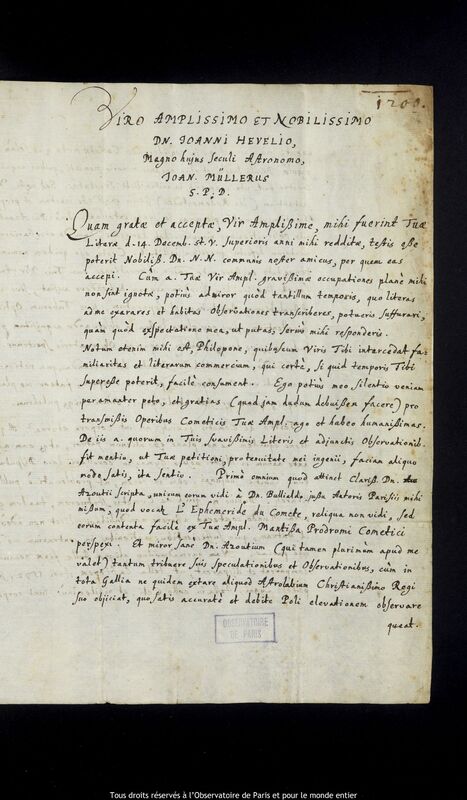 1200.
VIRO AMPLISSIMO ET NOBILISSIMO
DN. IOANNI HEVELIO,
Magno hujus seculi Astronomo,
IOAN. MÜLLERUS
S. P. D.
Quam gratæ et acceptæ, Vir Amplißime, mihi fuerint Tuæ
Literæ d. 14. Decemb. st. v. superioris anni mihi redditæ, testis eße
poterit Nobiliß. Dn. N. N. communis noster amicus, per quem eas
accepi. Cùm a. Tuæ Vir Ampl. gravißimæ occupationes planè mihi
non sint ignotæ, potius admiror quòd tantillum temporis, quo literas
ad me exarares et habitas Observationes transcriberes, potueris suffurari,
quàm quòd exspectatione mea, ut putas, serius mihi responderis.
Notum etenim mihi est, Philopone, quibuscum Viris Tibi intercedat fa-
miliaritas et literarum commercium, qui certè, si quid temporis Tibi
supereße poterit, facilè consument. Ego potius meo silentio veniam
peramanter peto, et gratias (quod jam dudum debuißem facere) pro
transmißis Operibus Cometicis Tuæ Ampl. ago et habeo humanißimas.
De iis a. quorum in Tuis suavißimis Literis et adjunctis Observationib.
fit mentio, ut Tuæ petitioni, pro tenuitate mei ingenii, faciam aliquo
modo satis, ita sentio. Primò omnium quod attinet Clariß. Dn.
Azoutii scripta, unicum eorum vidi à Dn. Bullialdo jußu Autoris Parisiis mihi
mißum, quod vocat L'Ephemeride du Comete, reliqua non vidi, sed
eorum contenta facilè ex Tuæ Ampl. Mantißa Prodromi Cometici
perspexi. Et miror sanè Dn. Azoutium (qui tamen plurimùm apud me
valet) tantum tribuere suis speculationibus et Observationibus, cùm in
tota Gallia ne quidem extare aliquod Astrolabium Christianißimo Regi
suo objiciat, quo satis accuratè et debitè Poli elevationem observare
queat.
OBSERVATOIRE
DE PARIS
Tous droits réservés à l'Observatoire de Paris et pour le monde entier